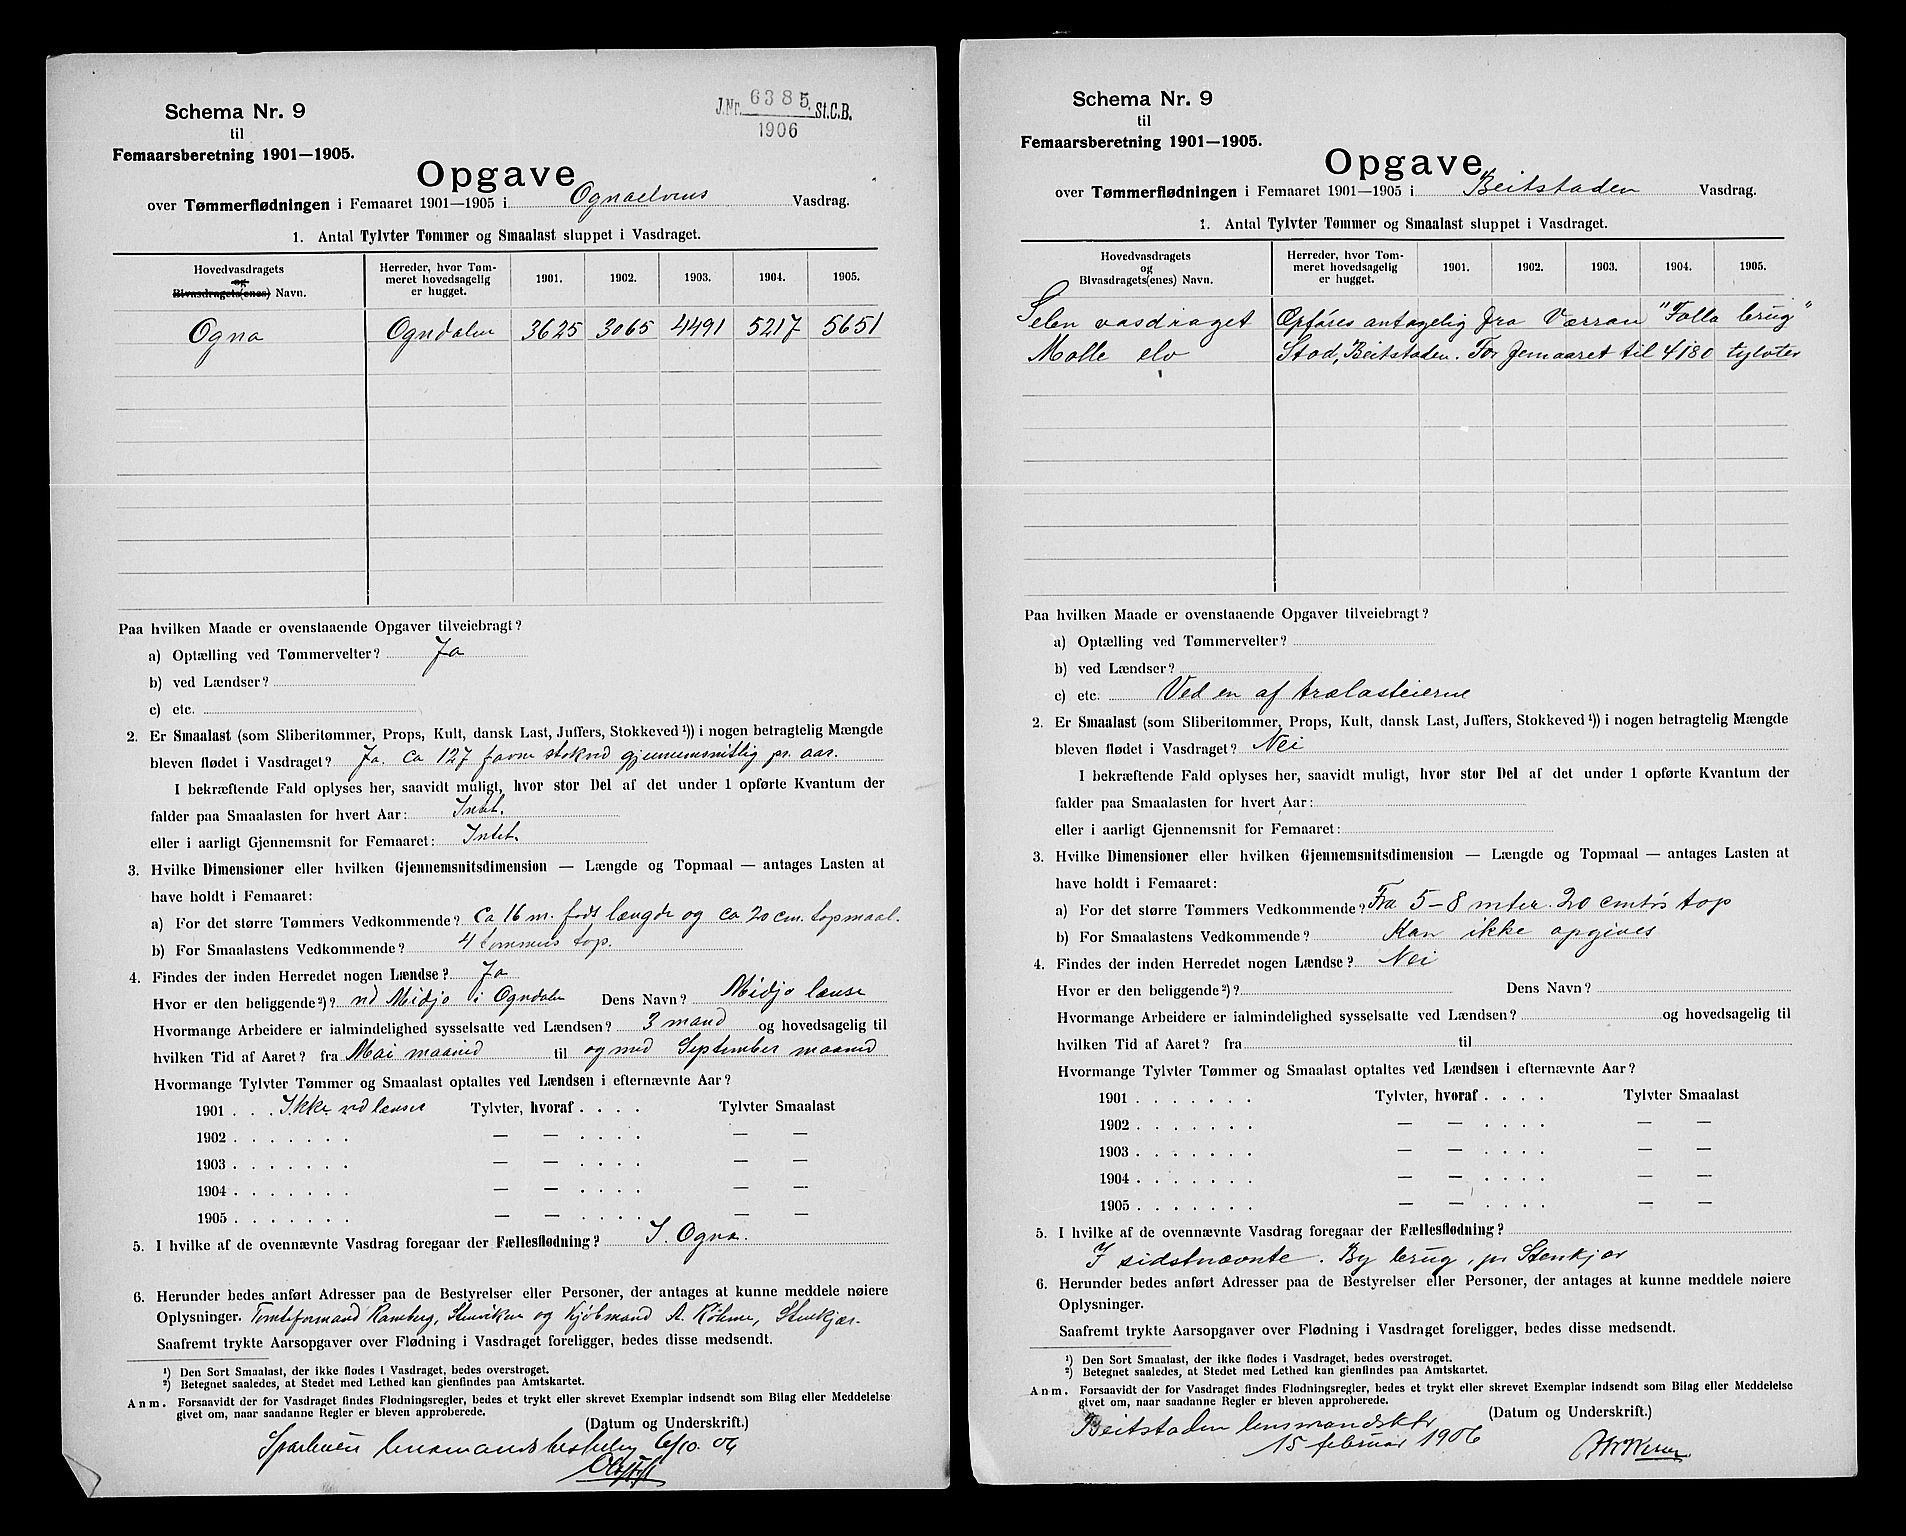 Schema Nr. 9
til
Femaarsberetning 1901—1905.
J.Nr. 6385. St.C.B.
1906
Opgave
over Tømmerflødningen i Femaaret 1901-1905 i Ognaelvens Vasdrag.
1. Antal Tylvter Tømmer og Smaalast sluppet i Vasdraget.
Hovedvasdragets
og
Bivasdragets(enes) Navn.
Herreder, hvor Tøm-
meret hovedsagelig
er hugget.
1901. 1902. 1903. 1904. 1905.
Ogna Ogndalen 3625 3065 4491 5217 5651
Paa hvilken Maade er ovenstaaende Opgaver tilveiebragt?
a) Optælling ved Tømmervelter? Ja
b) ved Lændser?
c) etc.
2. Er Smaalast (som Sliberitømmer, Props, Kult, dansk Last, Juffers, Stokkeved ¹)) i nogen betragtelig Mængde
bleven flødet i Vasdraget? Ja. ca 127 favne stokved gjennemsnitlig pr. aar.
I bekræftende Fald oplyses her, saavidt muligt, hvor stor Del af det under 1 opførte Kvantum der
falder paa Smaalasten for hvert Aar: Intet.
eller i aarligt Gjennemsnit for Femaaret: Intet.
3. Hvilke Dimensioner eller hvilken Gjennemsnitsdimension — Længde og Topmaal — antages Lasten at
have holdt i Femaaret:
a) For det større Tømmers Vedkommende? ca 16 m. fods længde og ca 20 cm. topmaal.
b) For Smaalastens Vedkommende? 4 tommers top.
4. Findes der inden Herredet nogen Lændse? Ja
Hvor er den beliggende²)? ved Midjo i Ogndalen Dens Navn? Midjo lænse
Hvormange Arbeidere er ialmindelighed sysselsatte ved Lændsen? 3 mand og hovedsagelig til
hvilken Tid af Aaret? fra Mai maaned til og med September maaned
Hvormange Tylvter Tømmer og Smaalast optaltes ved Lændsen i efternævnte Aar?
1901 . . . Ikke ved lænser Tylvter, hvoraf . . . . Tylvter Smaalast
1902 . . . . . . . — — . . . . — —
1903 . . . . . . . — — . . . . — —
1904 . . . . . . . — — . . . . — —
1905 . . . . . . . — — . . . . — —
5. I hvilke af de ovennævnte Vasdrag foregaar der Fællesflødning? I. Ogna.
6. Herunder bedes anført Adresser paa de Bestyrelser eller Personer, der antages at kunne meddele nøiere
Oplysninger. Tomteformand Ramberg, Stenviken og Kjøbmand A. Røhme, Stenkjær.
Saafremt trykte Aarsopgaver over Flødning i Vasdraget foreligger, bedes disse medsendt.
¹) Den Sort Smaalast, der ikke flødes i Vasdraget, bedes overstrøget.
²) Betegnet saaledes, at Stedet med Lethed kan gienfindes paa Amtskartet.
Anm. Forsaavidt der for Vasdraget findes Flødningsregler, bedes et trykt eller skrevet Exemplar indsendt som Bilag eller Meddelelse
givet om, naar saadanne Regler er bleven approberede.
(Datum og Underskrift.)
Sparbuen lensmandsbestilling 6/10. 06
Schema Nr. 9
til
Femaarsberetning 1901—1905.
Opgave
over Tømmerflødningen i Femaaret 1901-1905 i Beitstaden Vasdrag.
1. Antal Tylvter Tømmer og Smaalast sluppet i Vasdraget.
Hovedvasdragets
og
Bivasdragets(enes) Navn.
Herreder, hvor Tøm-
meret hovedsagelig
er hugget.
1901. 1902. 1903. 1904. 1905.
Selen vasdraget Opføres antagelig fra Værran "Folla brug"
Molle elv Stod, Beitstaden. For femaaret til 4180 tylvter
Paa hvilken Maade er ovenstaaende Opgaver tilveiebragt?
a) Optælling ved Tømmervelter?
b) ved Lændser?
c) etc. Ved en af trælasteierne
2. Er Smaalast (som Sliberitømmer, Props, Kult, dansk Last, Juffers, Stokkeved ¹)) i nogen betragtelig Mængde
bleven flødet i Vasdraget? Nei
I bekræftende Fald oplyses her, saavidt muligt, hvor stor Del af det under 1 opførte Kvantum der
falder paa Smaalasten for hvert Aar:
eller i aarligt Gjennemsnit for Femaaret:
3. Hvilke Dimensioner eller hvilken Gjennemsnitsdimension — Længde og Topmaal — antages Lasten at
have holdt i Femaaret:
a) For det større Tømmers Vedkommende? Fra 5-8 mter. 20 cmtrs top
b) For Smaalastens Vedkommende? Kan ikke opgives
4. Findes der inden Herredet nogen Lændse? Nei
Hvor er den beliggende²)? Dens Navn?
Hvormange Arbeidere er ialmindelighed sysselsatte ved Lændsen? og hovedsagelig til
hvilken Tid af Aaret? fra til
Hvormange Tylvter Tømmer og Smaalast optaltes ved Lændsen i efternævnte Aar?
1901 . . . . . . . Tylvter, hvoraf . . . . Tylvter Smaalast
1902 . . . . . . . — — . . . . — —
1903 . . . . . . . — — . . . . — —
1904 . . . . . . . — — . . . . — —
1905 . . . . . . . — — . . . . — —
5. I hvilke af de ovennævnte Vasdrag foregaar der Fællesflødning?
I sidstnævnte. By brug, pr Stenkjær
6. Herunder bedes anført Adresser paa de Bestyrelser eller Personer, der antages at kunne meddele nøiere
Oplysninger.
Saafremt trykte Aarsopgaver over Flødning i Vasdraget foreligger, bedes disse medsendt.
¹) Den Sort Smaalast, der ikke flødes i Vasdraget, bedes overstrøget.
²) Betegnet saaledes, at Stedet med Lethed kan gienfindes paa Amtskartet.
Anm. Forsaavidt der for Vasdraget findes Flødningsregler, bedes et trykt eller skrevet Exemplar indsendt som Bilag eller Meddelelse
givet om, naar saadanne Regler er bleven approberede.
(Datum og Underskrift.)
Beitstaden lensmandsktr
15 februar 1906